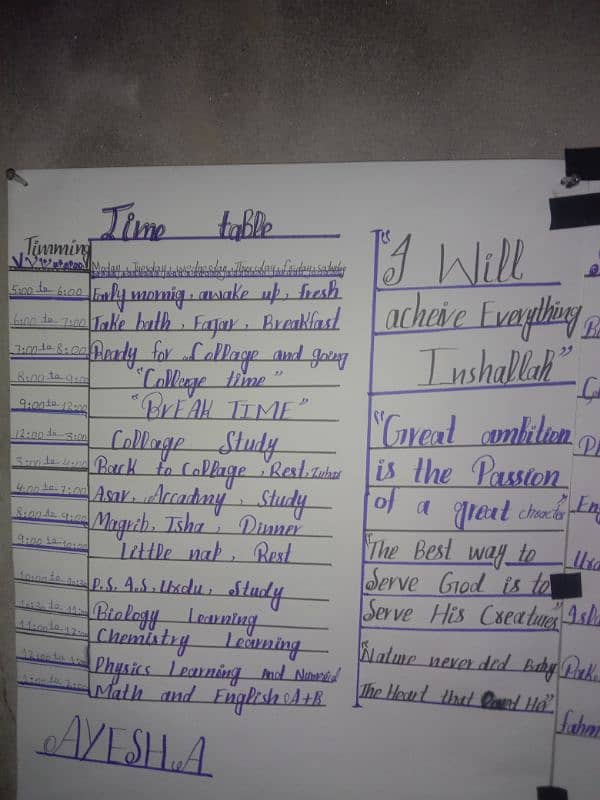 Time table
Timming
Moday, Tuesday, wednesday, Thursday, friday, satuday
5:00 to 6:00 Early mornig, awake up, fresh
6:00 to 7:00 Take bath, Fajar, Breakfast
7:00 to 8:00 Ready for Collage and going
8:00 to 9:00 "College time"
9:00 to 12:00 "BREAK TIME"
12:00 to 3:00 Collage Study
3:00 to 4:00 Back to Collage, Rest, Zuhar
4:00 to 7:00 Asar, Accadmy, Study
8:00 to 9:00 Magrib, Isha, Dinner
9:00 to 10:00 Little nap, Rest
10:00 to P.S, A.S, Urdu, Study
Biology Learning
11:00 to 12:00 Chemistry Learning
12:00 to Physics Learning and Numerical
Math and English A+B
AYESHA
"I Will
acheive Everything
Inshallah"
"Great ambition
is the Passion
of a great character"
"The Best way to
Serve God is to
Serve His Creatures"
"Nature never ded
The Heart that